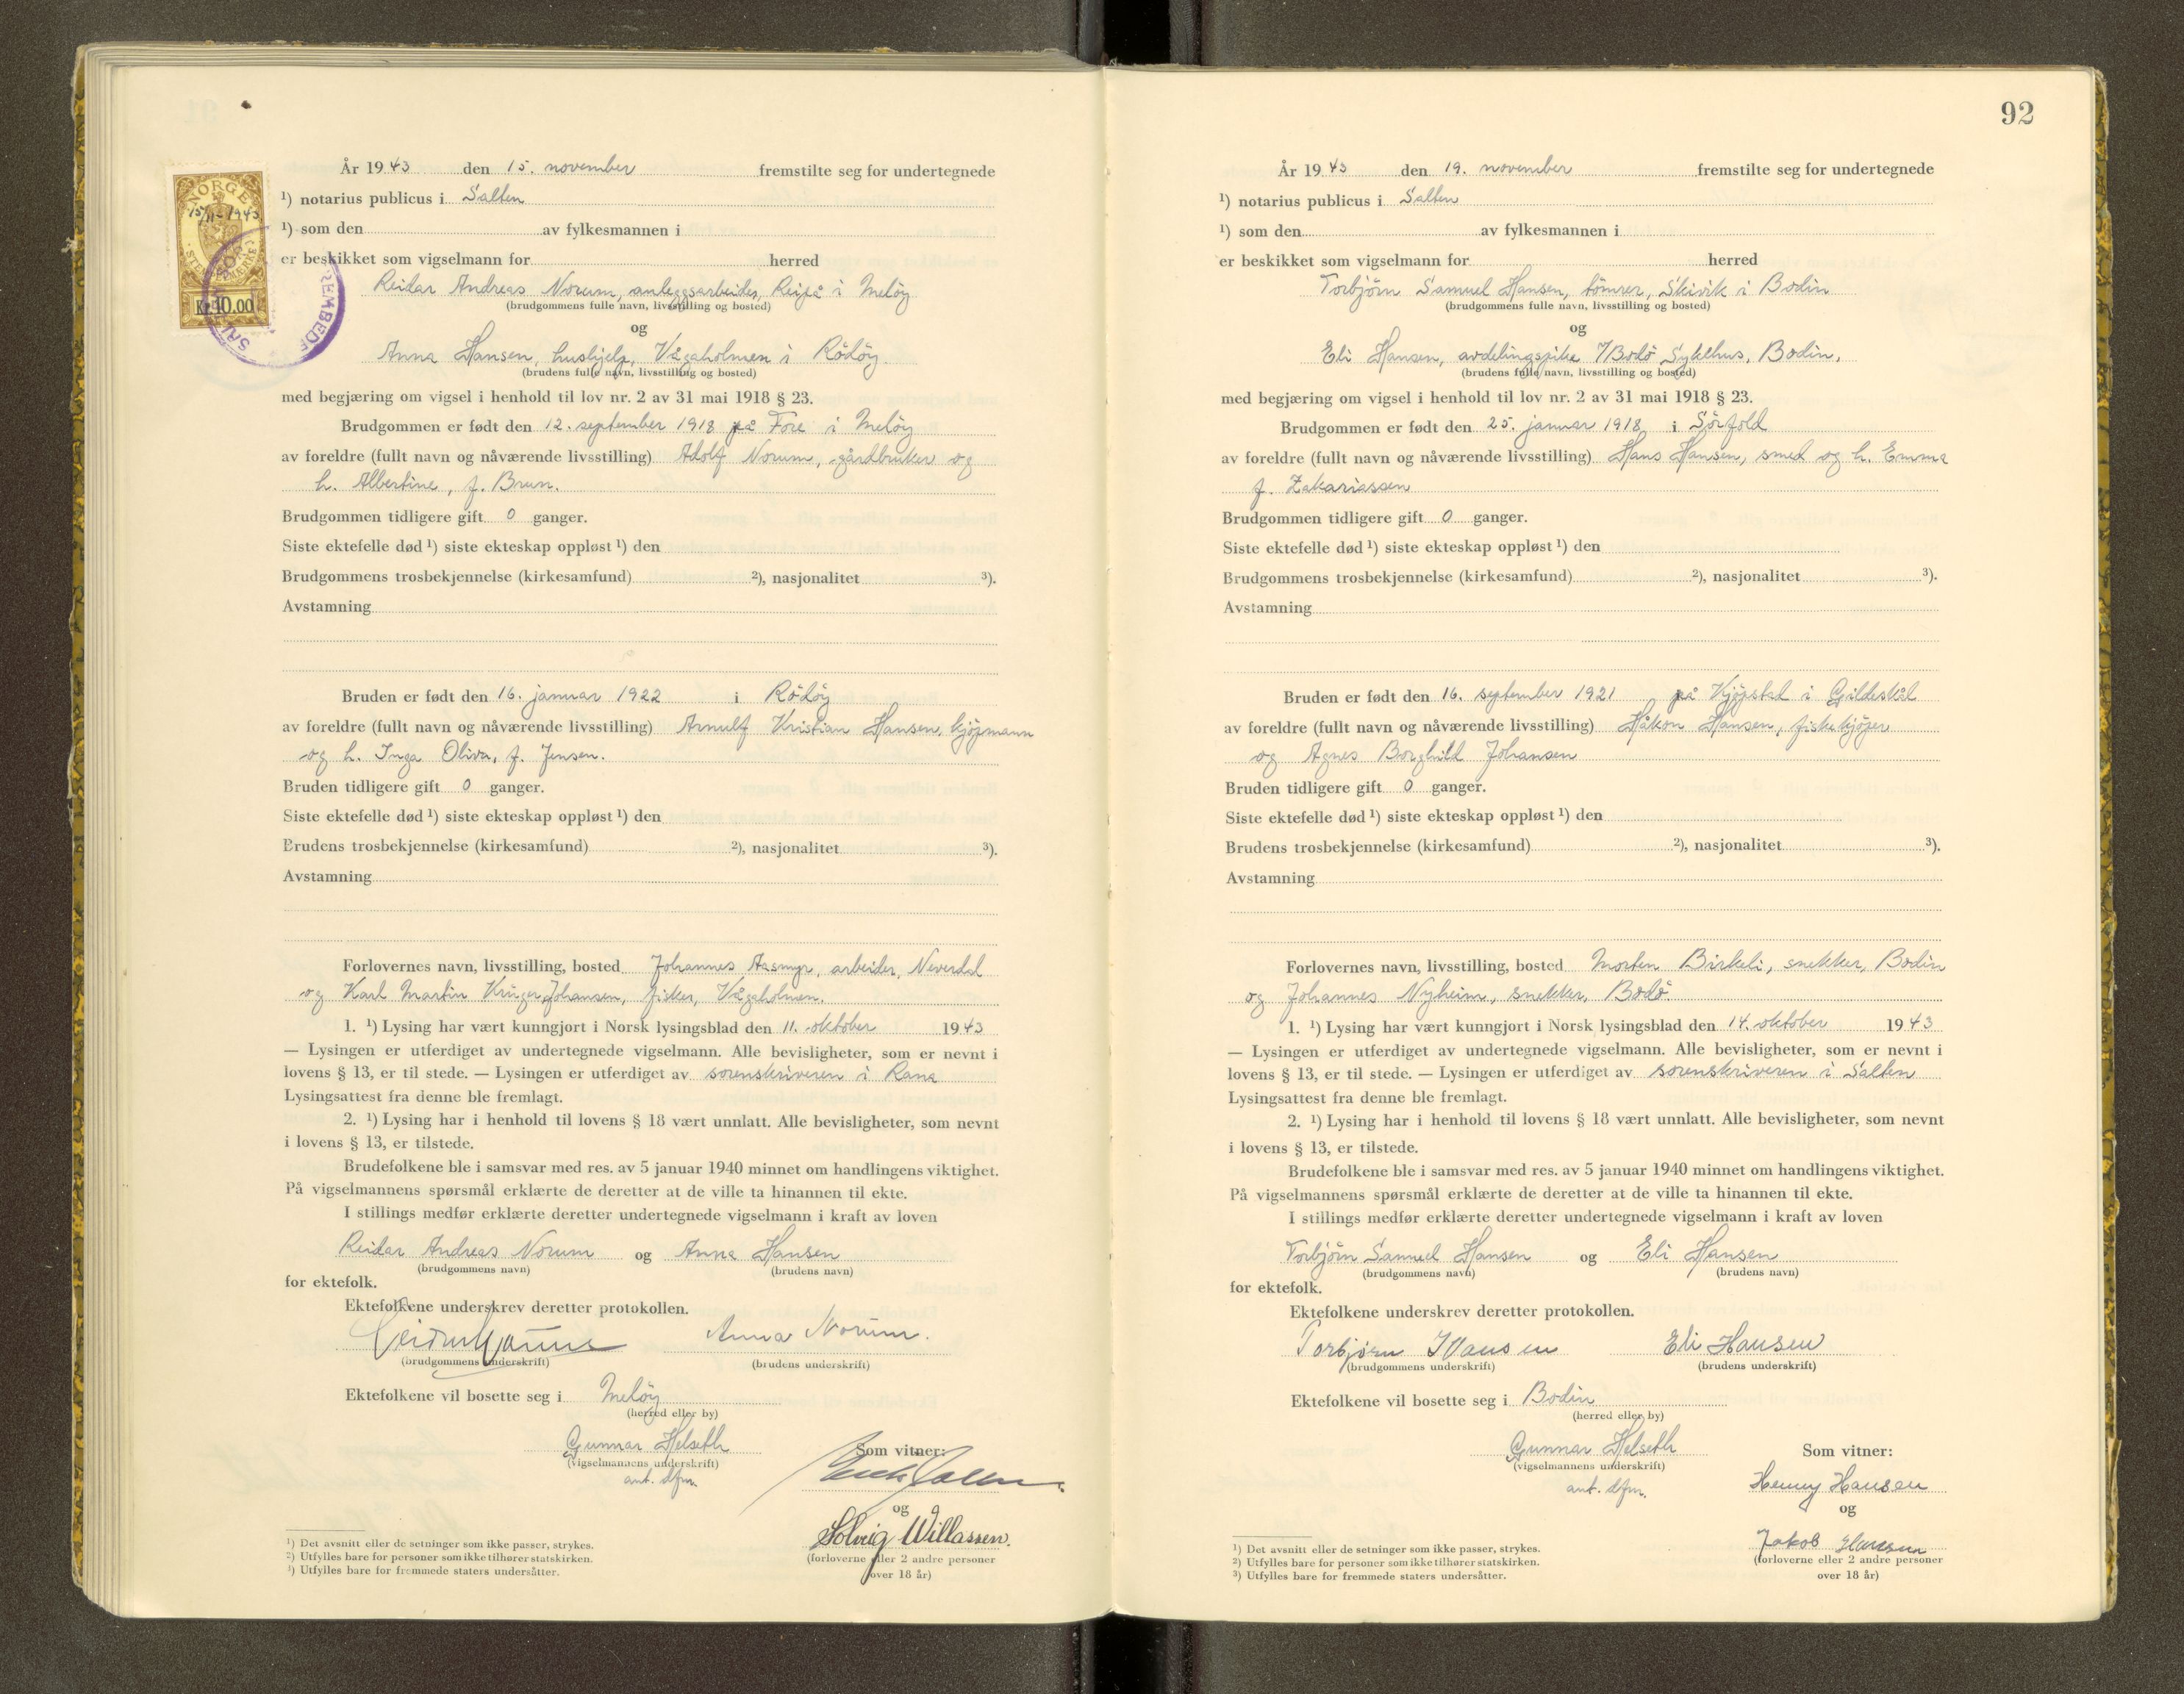 År 1943 den 15. november fremstilte seg for undertegnede
¹) notarius publicus i Salten
¹) som den av fylkesmannen i
er beskikket som vigselmann for herred
NORGE
15/11-1943
Kr. 10.00
Reidar Andreas Norum, anleggsarbeider, Reipå i Meløy
(brudgommens fulle navn, livsstilling og bosted)
og
Anna Hansen, hushjelp, Vågaholmen i Rödöy.
(brudens fulle navn, livsstilling og bosted)
med begjæring om vigsel i henhold til lov nr. 2 av 31 mai 1918 § 23.
Brudgommen er født den 12. september 1918 på Fore i Melöy
av foreldre (fullt navn og nåværende livsstilling) Adolf Norum, gårdbruker og
h. Albertine, f. Brun.
Brudgommen tidligere gift 0 ganger.
Siste ektefelle død ¹) siste ekteskap oppløst ¹) den
Brudgommens trosbekjennelse (kirkesamfund) ²), nasjonalitet ³).
Avstamning
Bruden er født den 16. januar 1922 i Rödöy
av foreldre (fullt navn og nåværende livsstilling) Arnulf Kristian Hansen, kjöpmann
og h. Inga Oliva, f. Jensen.
Bruden tidligere gift 0 ganger.
Siste ektefelle død ¹) siste ekteskap oppløst ¹) den
Brudens trosbekjennelse (kirkesamfund) ²), nasjonalitet ³).
Avstamning
Forlovernes navn, livsstilling, bosted Johannes Aasmyr, arbeider, Neverdal
og Karl Martin Krüger Johansen, fisker, Vågaholmen.
1. ¹) Lysing har vært kunngjort i Norsk lysingsblad den 11. oktober 1943
— Lysingen er utferdiget av undertegnede vigselmann. Alle bevisligheter, som er nevnt i
lovens § 13, er til stede. — Lysingen er utferdiget av sorenskriveren i Rana
Lysingsattest fra denne ble fremlagt.
2. ¹) Lysing har i henhold til lovens § 18 vært unnlatt. Alle bevisligheter, som nevnt
i lovens § 13, er tilstede.
Brudefolkene ble i samsvar med res. av 5 januar 1940 minnet om handlingens viktighet.
På vigselmannens spørsmål erklærte de deretter at de ville ta hinannen til ekte.
I stillings medfør erklærte deretter undertegnede vigselmann i kraft av loven
Reidar Andreas Norum og Anna Hansen
(brudgommens navn) (brudens navn)
for ektefolk.
Ektefolkene underskrev deretter protokollen.
Reidar Norum Anna Norum.
(brudgommens underskrift) (brudens underskrift)
Ektefolkene vil bosette seg i Melöy
(herred eller by)
Gunnar Helseth
(vigselmannens underskrift)
ant. dfm.
Som vitner:
og
Solveig Willassen.
(forloverne eller 2 andre personer
over 18 år)
¹) Det avsnitt eller de setninger som ikke passer, strykes.
²) Utfylles bare for personer som ikke tilhører statskirken.
³) Utfylles bare for fremmede staters undersåtter.
92
År 1943 den 19. november fremstilte seg for undertegnede
¹) notarius publicus i Salten
¹) som den av fylkesmannen i
er beskikket som vigselmann for herred
Torbjörn Samuel Hansen, tömrer, Skivik i Bodin
(brudgommens fulle navn, livsstilling og bosted)
og
Eli Hansen, avdelingspike v/Bodö Sykehus, Bodin.
(brudens fulle navn, livsstilling og bosted)
med begjæring om vigsel i henhold til lov nr. 2 av 31 mai 1918 § 23.
Brudgommen er født den 25. januar 1918 i Sörfold
av foreldre (fullt navn og nåværende livsstilling) Hans Hansen, smed og h. Emma
f. Zakariassen
Brudgommen tidligere gift 0 ganger.
Siste ektefelle død ¹) siste ekteskap oppløst ¹) den
Brudgommens trosbekjennelse (kirkesamfund) ²), nasjonalitet ³).
Avstamning
Bruden er født den 16. september 1921 på Kjöpstad i Gildeskål
av foreldre (fullt navn og nåværende livsstilling) Håkon Hansen, fiskekjöper
og Agnes Borghild Johansen
Bruden tidligere gift 0 ganger.
Siste ektefelle død ¹) siste ekteskap oppløst ¹) den
Brudens trosbekjennelse (kirkesamfund) ²), nasjonalitet ³).
Avstamning
Forlovernes navn, livsstilling, bosted Morten Birkeli, snekker, Bodin
og Johannes Nyheim, snekker, Bodö
1. ¹) Lysing har vært kunngjort i Norsk lysingsblad den 14. oktober 1943
— Lysingen er utferdiget av undertegnede vigselmann. Alle bevisligheter, som er nevnt i
lovens § 13, er til stede. — Lysingen er utferdiget av sorenskriveren i Salten
Lysingsattest fra denne ble fremlagt.
2. ¹) Lysing har i henhold til lovens § 18 vært unnlatt. Alle bevisligheter, som nevnt
i lovens § 13, er tilstede.
Brudefolkene ble i samsvar med res. av 5 januar 1940 minnet om handlingens viktighet.
På vigselmannens spørsmål erklærte de deretter at de ville ta hinannen til ekte.
I stillings medfør erklærte deretter undertegnede vigselmann i kraft av loven
Torbjörn Samuel Hansen og Eli Hansen
(brudgommens navn) (brudens navn)
for ektefolk.
Ektefolkene underskrev deretter protokollen.
Torbjørn Hansen Eli Hansen
(brudgommens underskrift) (brudens underskrift)
Ektefolkene vil bosette seg i Bodin
(herred eller by)
Gunnar Helseth
(vigselmannens underskrift)
ant. dfm.
Som vitner:
Henny Hansen
og
Jakob Hansen
(forloverne eller 2 andre personer
over 18 år)
¹) Det avsnitt eller de setninger som ikke passer, strykes.
²) Utfylles bare for personer som ikke tilhører statskirken.
³) Utfylles bare for fremmede staters undersåtter.